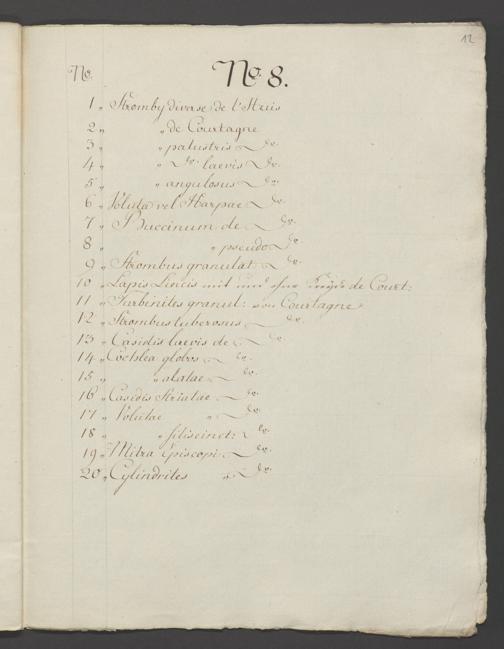 12
No. No. 8.
1 „ Stromby diverse de l'
2 „ „ de Courtagne
3 „ „ palustris do.
4 „ „ do. laevis do.
5 „ „ angulosus do.
6 „ Voluta vel Harpae do.
7 „ Buccinum de do.
8 „ „ pseudo do.
9 „ Strombus granulat: do.
10 „ Lapis Lincis mit und ohne de Court:
11 „ Turbinites granul: von Courtagne
12 „ Strombus tuberosus do.
13 „ Casidis laevis de do.
14 „ Cochlea globos do.
15 „ „ alatae do.
16 „ Casidis Striatae do.
17 „ Volutae „ do.
18 „ „ do.
19 „ Mitra Episcopi do.
20 „ Cylindrites „ do.